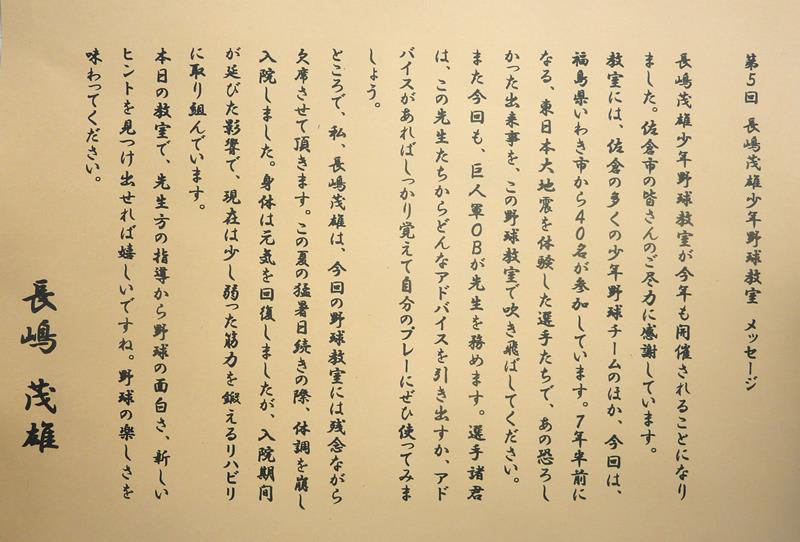 第5回 長嶋茂雄少年野球教室 メッセージ
長嶋茂雄少年野球教室が今年も開催されることになり
ました。佐倉市の皆さんのご尽力に感謝しています。
教室には、佐倉の多くの少年野球チームのほか、今回は、
福島県いわき市から40名が参加しています。7年半前に
なる、東日本大地震を体験した選手たちで、あの恐ろし
かった出来事を、この野球教室で吹き飛ばしてください。
また今回も、巨人軍OBが先生を務めます。選手諸君
は、この先生たちからどんなアドバイスを引き出すか、アド
バイスがあればしっかり覚えて自分のプレーにぜひ使ってみま
しょう。
ところで、私、長嶋茂雄は、今回の野球教室には残念ながら
欠席させて頂きます。この夏の猛暑日続きの際、体調を崩し
入院しました。身体は元気を回復しましたが、入院期間
が延びた影響で、現在は少し弱った筋力を鍛えるリハビリ
に取り組んでいます。
本日の教室で、先生方の指導から野球の面白さ、新しい
ヒントを見つけ出せれば嬉しいですね。野球の楽しさを
味わってください。
長嶋 茂雄